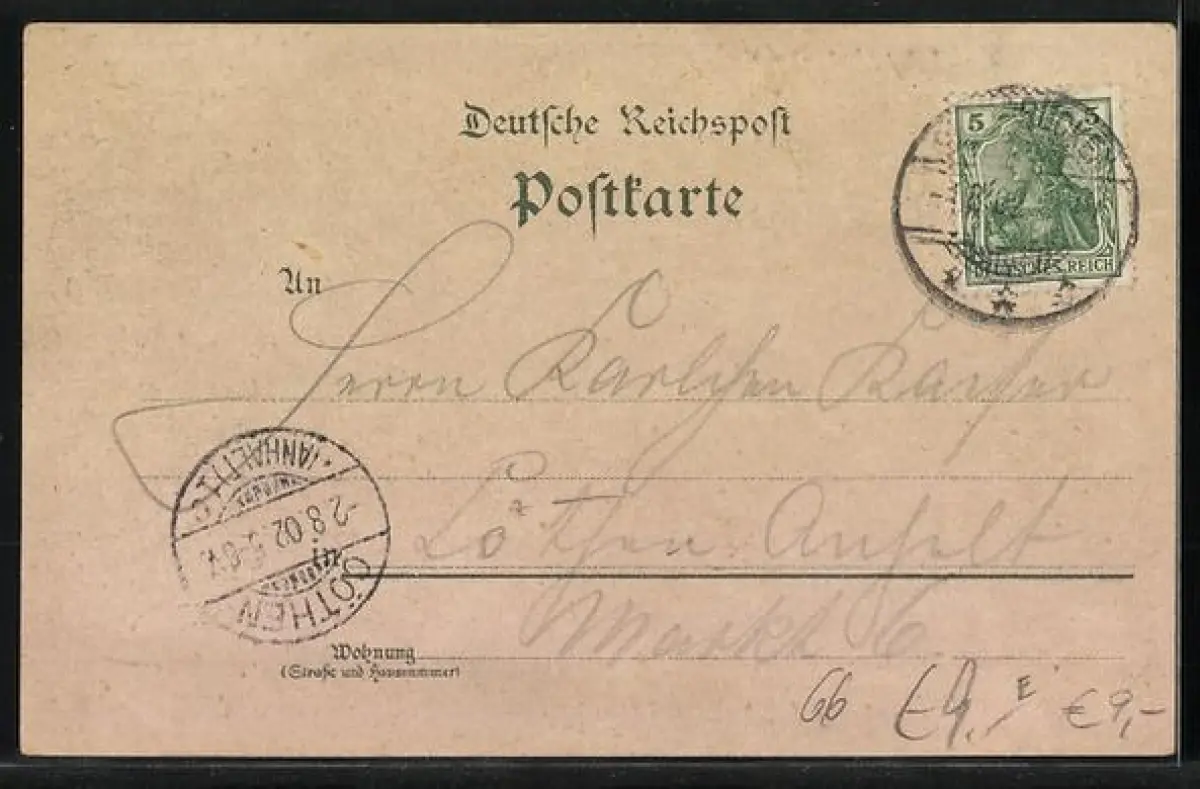 Deutsche Reichspost
Postkarte
5 5
DEUTSCHES REICH
An
Herrn Karlchen Kayser
Cöthen. Anhalt
Markt 6
(ANHALT)
2.8.02. 5-6 V.
CÖTHEN
Wohnung
(Straße und Hausnummer)
66
E
€ 9,-